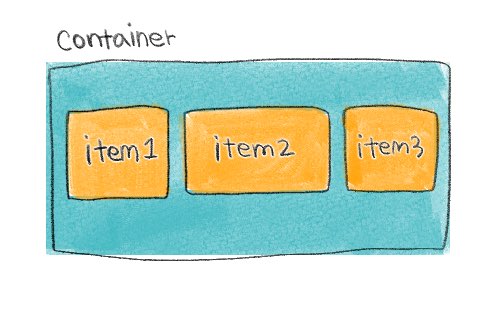 Container
item1
item2
item3